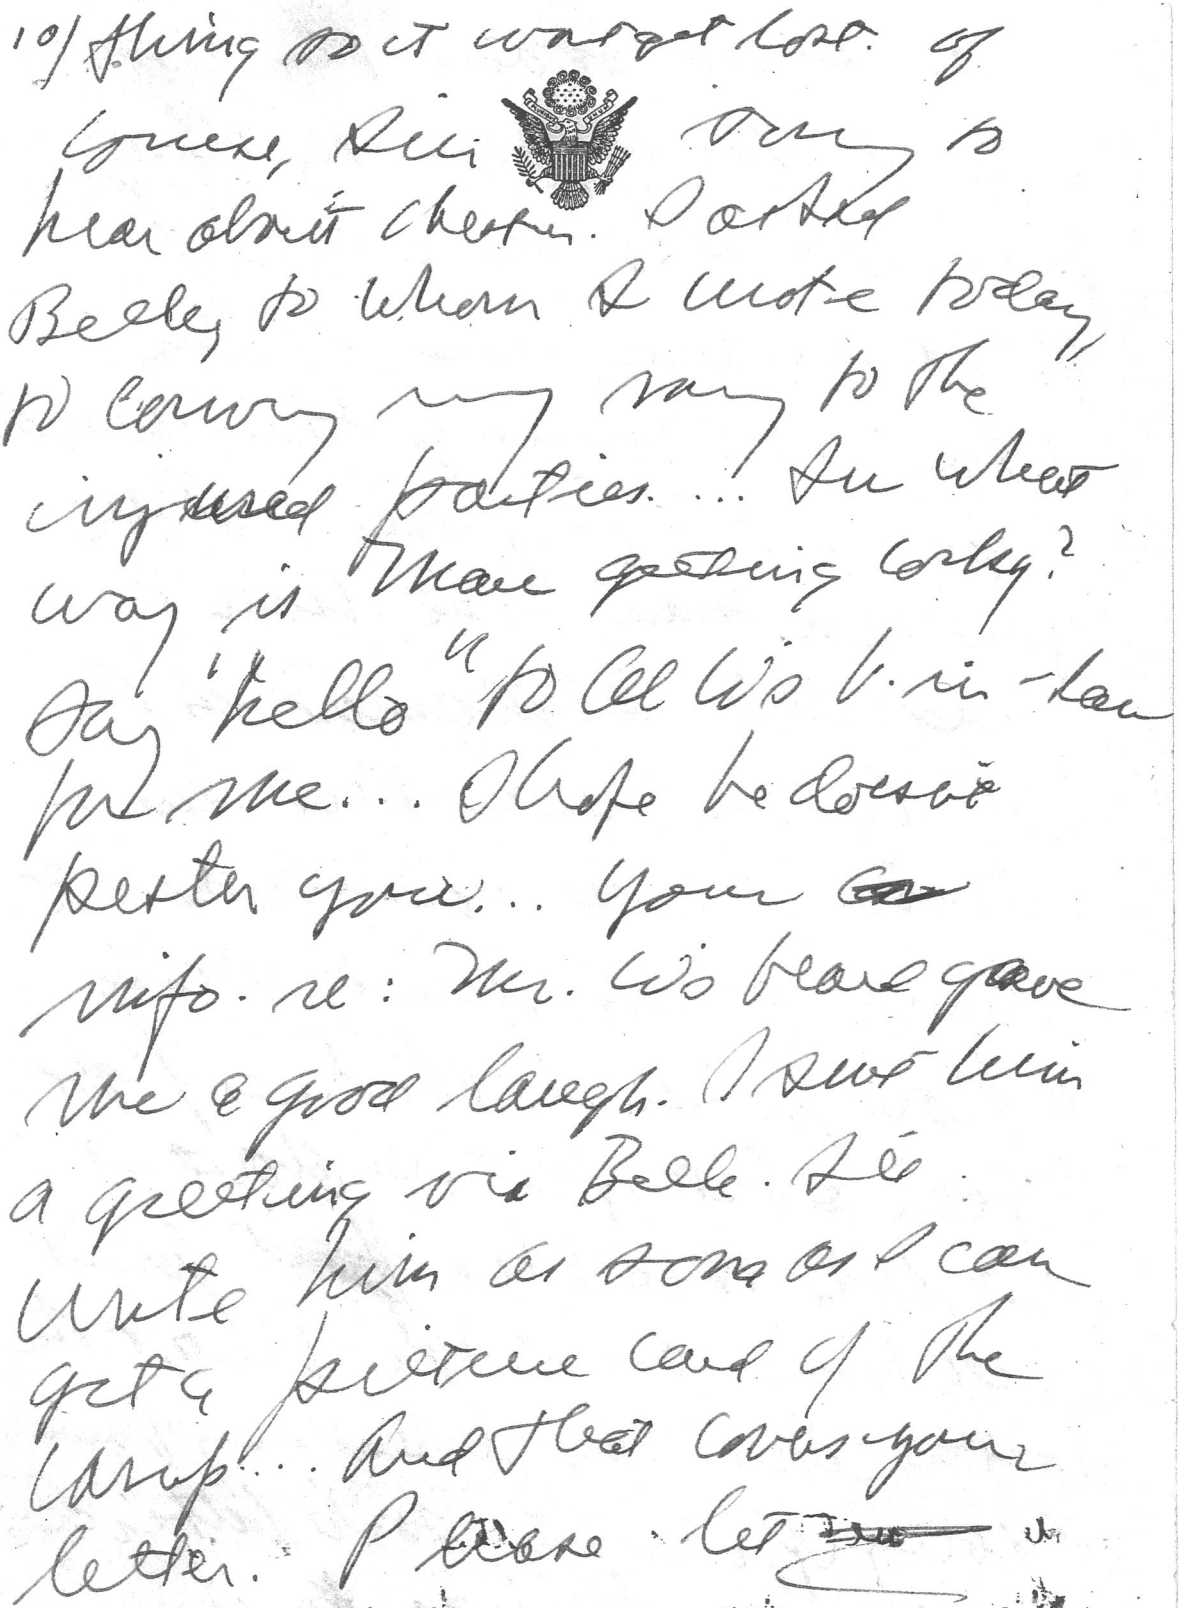 10/ thing so it won't get lost. Of
course, I'm sorry to
hear about Chester. I asked
Belle, to whom I wrote today,
to convey my sorry to the
injured parties.... In what
way is Mae getting corky?
Say "hello" to Cal W's b.-in-law
for me... I hope he doesn't
pester you... Your
info. re: Mr. W's beard gave
me a good laugh. I sent him
a greeting via Belle. I'll
write him as soon as I can
get a picture card of the
camp... And that covers your
letter. Please let